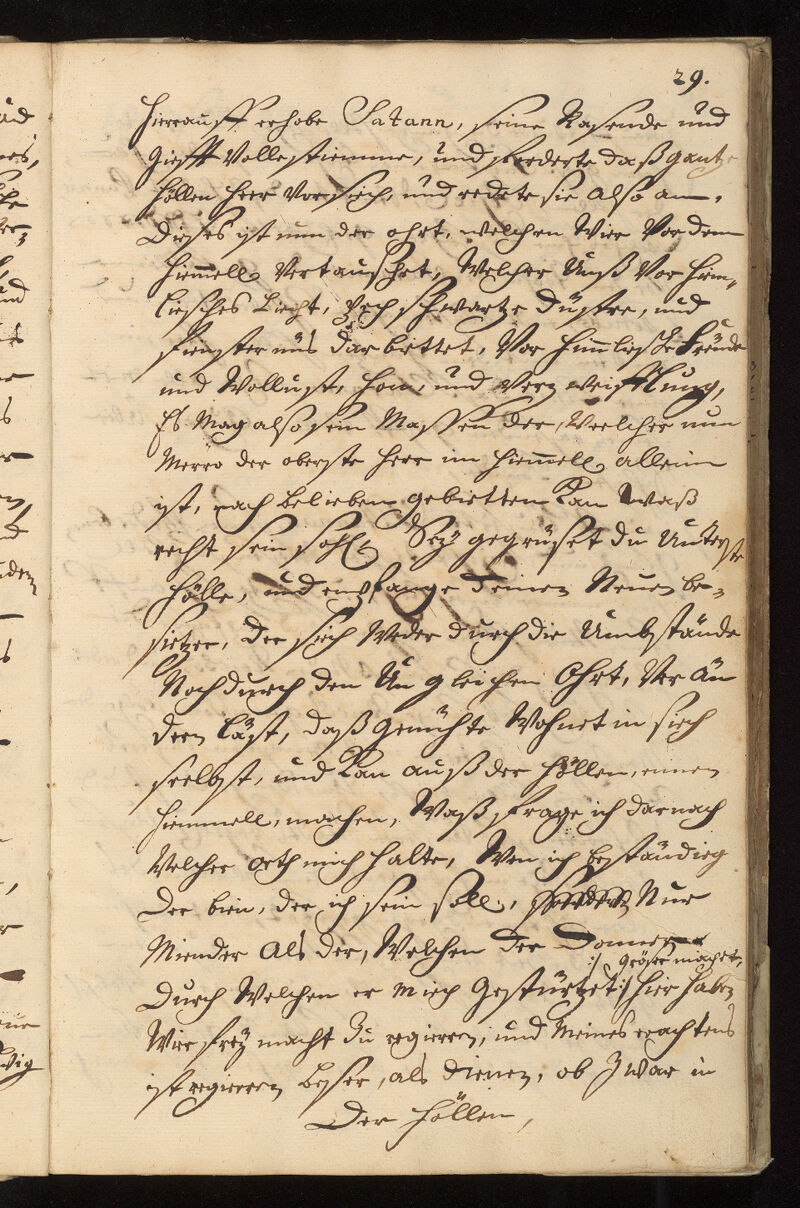 29.
Hierauff erhobe Satann, seine Rasende und
Giefft Volle stiemme, und foderte daß gantze
Höllen Heer Vor sich, und redete sie also an.
Dieses ist nun der ohrt, welchen Wier Vor dem
Hiemmell Vertauschet, Welcher Unß Vor Him„
lisches Liecht, pech schwartze Düstre, und
Finsternüs darbittet, Vor Himlische Freude
und Wollust, Hon, und Verzweifflung,
Es Mag also sein Massen der, Welcher nun
Mehro der oberste Herr im Hiemmell allein
ist, nach belieben gebietten Kan Waß
recht sein soll, Sey gegrüset du Unterste
Hölle, und empfange deinen Neuen be„
sietzer, der sich Weder durch die Umbstände
Noch durch den Ungleichen Ohrt, Verän
dern läst, daß gemühte Wohnet in siech
selbst, und Kan auß der Höllen, einen
Hiemmell, machen, Waß frage ich darnach
Welcher orth mich halte, Wen ich beständig
der bien, der ich sein soll, Nur
Miender Als der, Welchen der Donner
:/ größer machet,
Durch Welchen er Miech gestürtzet :/ Hier haben
Wier frey macht Zu regieren, und Meines erachtens
ist regieren beser, als dienen, ob Zwar in
Der Höllen,